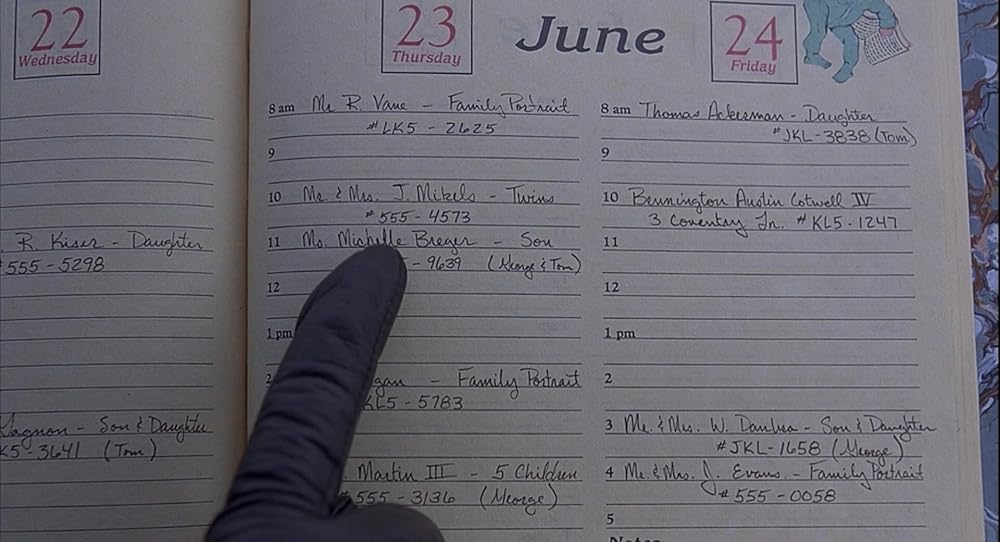 22
Wednesday
R. Kiser - Daughter
555-5298
Gagnon - Son & Daughter
K5-3641 (Tom)
23
Thursday
June
8 am Mr. R. Vane - Family Portrait
#LK5-2625
9
10 Mr. & Mrs. J. Mikels - Twins
#555-4573
11 Ms. Michelle Breger - Son
-9639 (George & Tom)
12
1 pm
2 gan - Family Portrait
KL5-5783
Martin III - 5 Children
#555-3136 (George)
24
Friday
8 am Thomas Ackerman - Daughter
#JKL-3838 (Tom)
9
10 Bennington Austin Cotwell IV
3 Coventry Ln. #KL5-1247
11
12
1 pm
2
3 Mr. & Mrs. W. - Son & Daughter
#JKL-1658 (George)
4 Mr. & Mrs. J. Evans. - Family Portrait
#555-0058
5
Notes